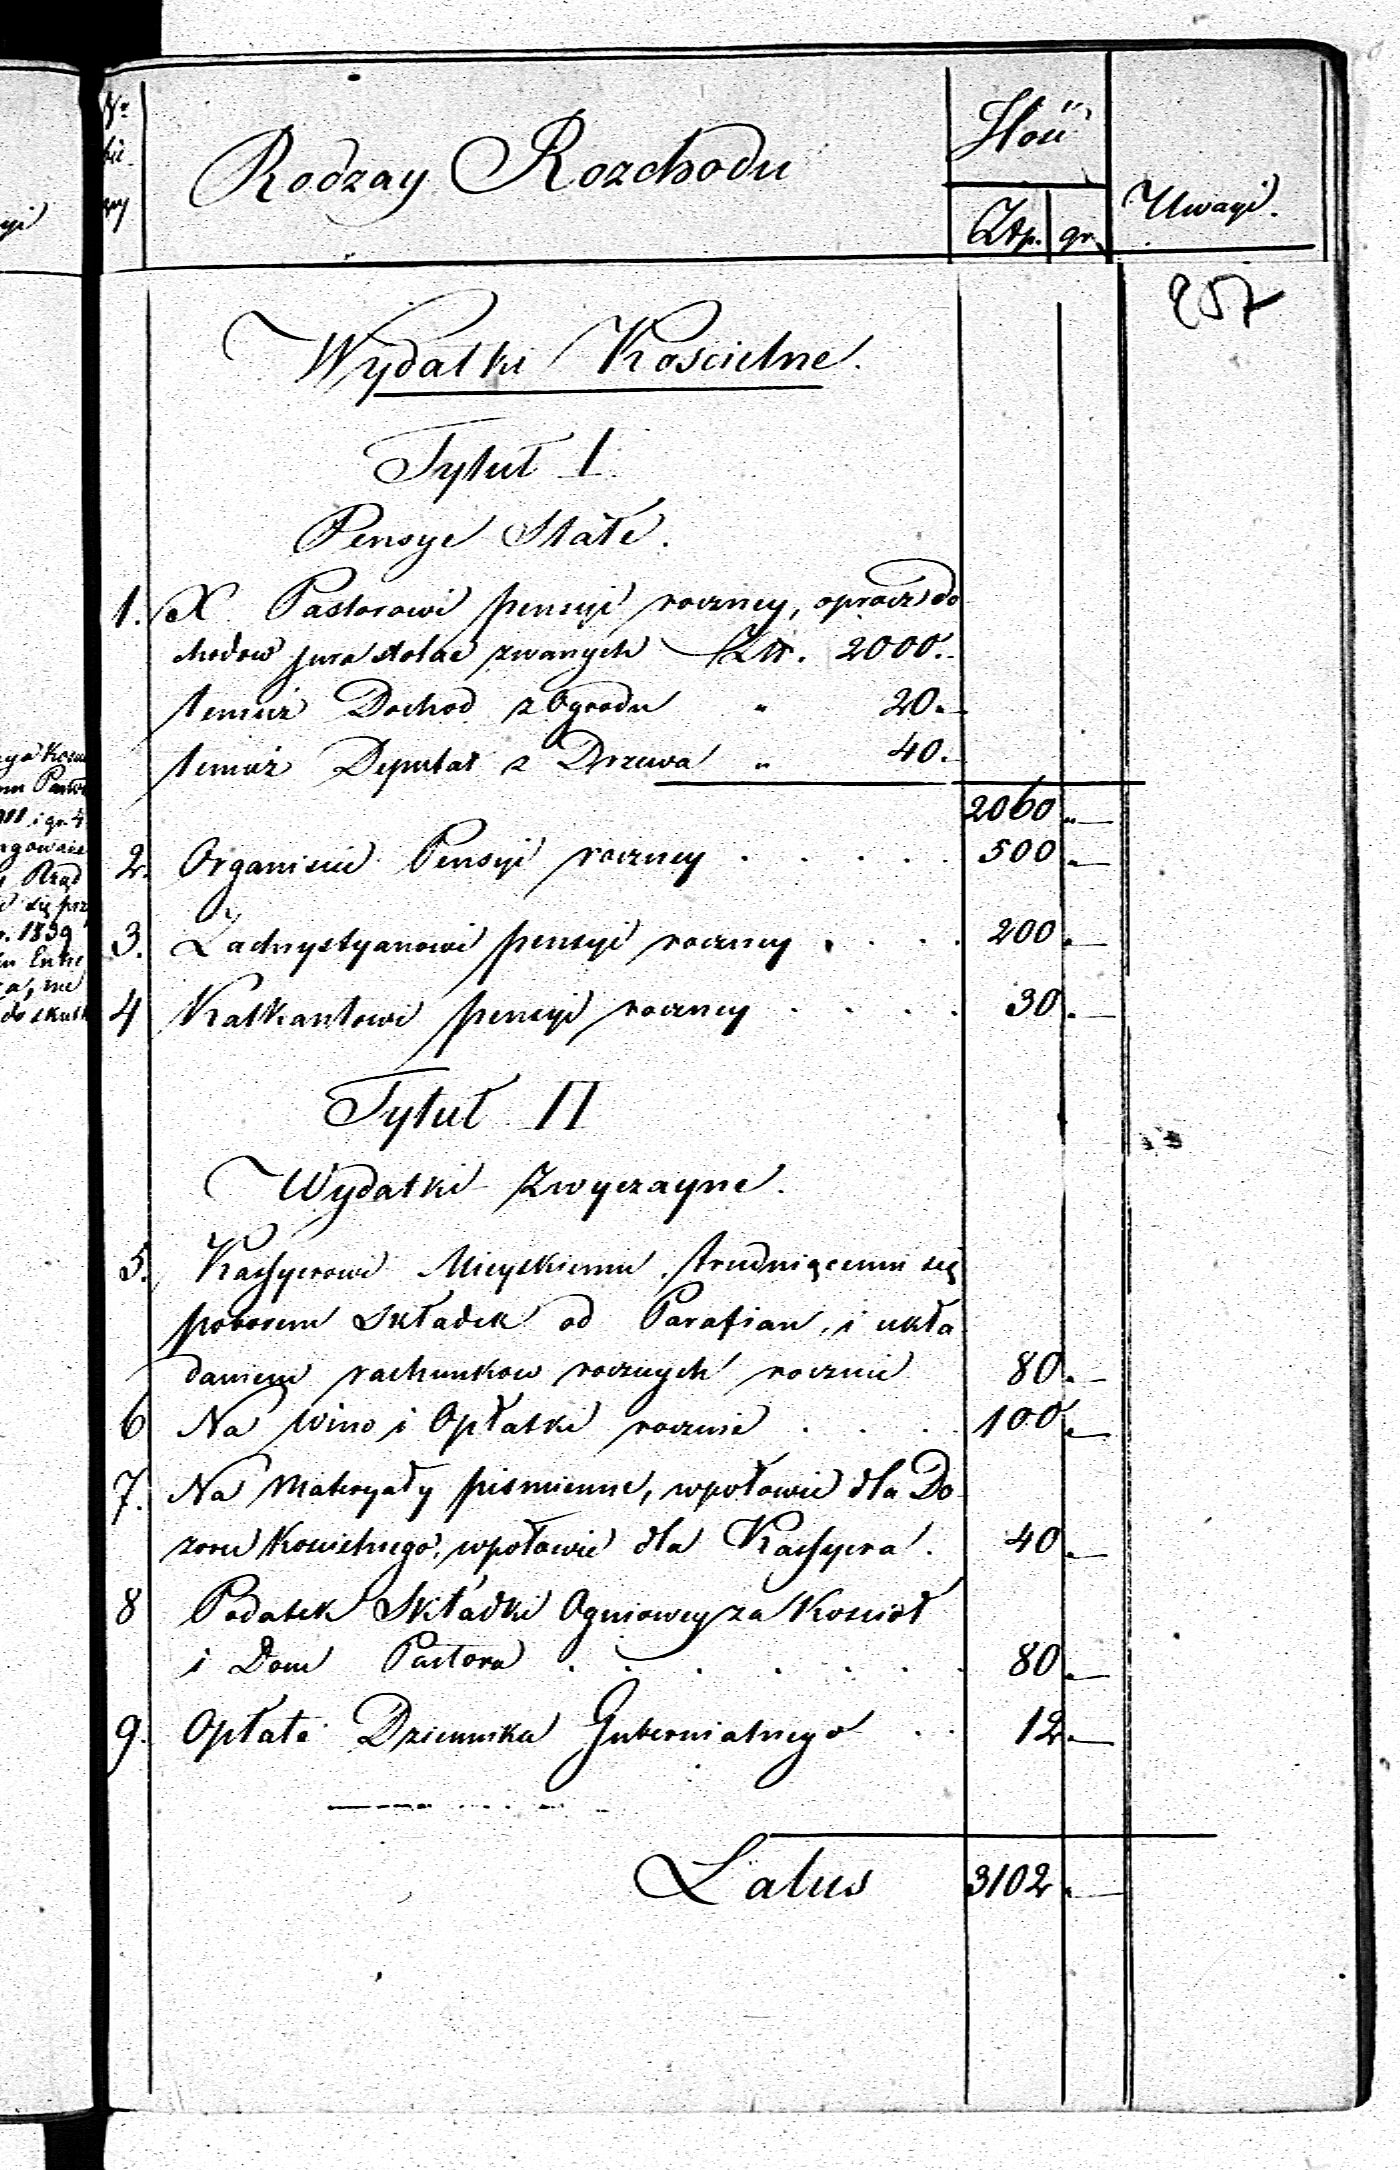 Rodzay Rozchodu
Ilość
Złp. gr.
Uwagi.
257
Wydatki Kościelne.
Tytuł I.
Pensye Stałe.
1. X Pastorowi pensyi roczney, oprócz do
chodow jura stolae zwanych Złt. 2000.
temuż Dochod z Ogrodu " 20.
temuż Deputat z Drzewa " 40.
2060
2. Organiście Pensyi roczney . . . . . 500
3. Zachrystyanowi pensyi roczney . . . . 200
4 Kalkantowi pensyi roczney . . . . 30
Tytuł II
Wydatki zwyczayne.
5. Kassyerowi Mieyskiemu trudniącemu się
poborem składek od Parafian, i ukła
daniem rachunkow rocznych rocznie 80
6 Na Wino i Opłatki rocznie . . . . 100
7. Na Materyały piśmienne, wpołowie dla Do
zoru Kościelnego, wpołowie dla Kassyera. 40
8 Podatek Składki Ogniowey za Kościoł
i Dom Pastora . . . . . . . 80
9. Opłata Dziennika Gubernialnego . . 12
Latus 3102